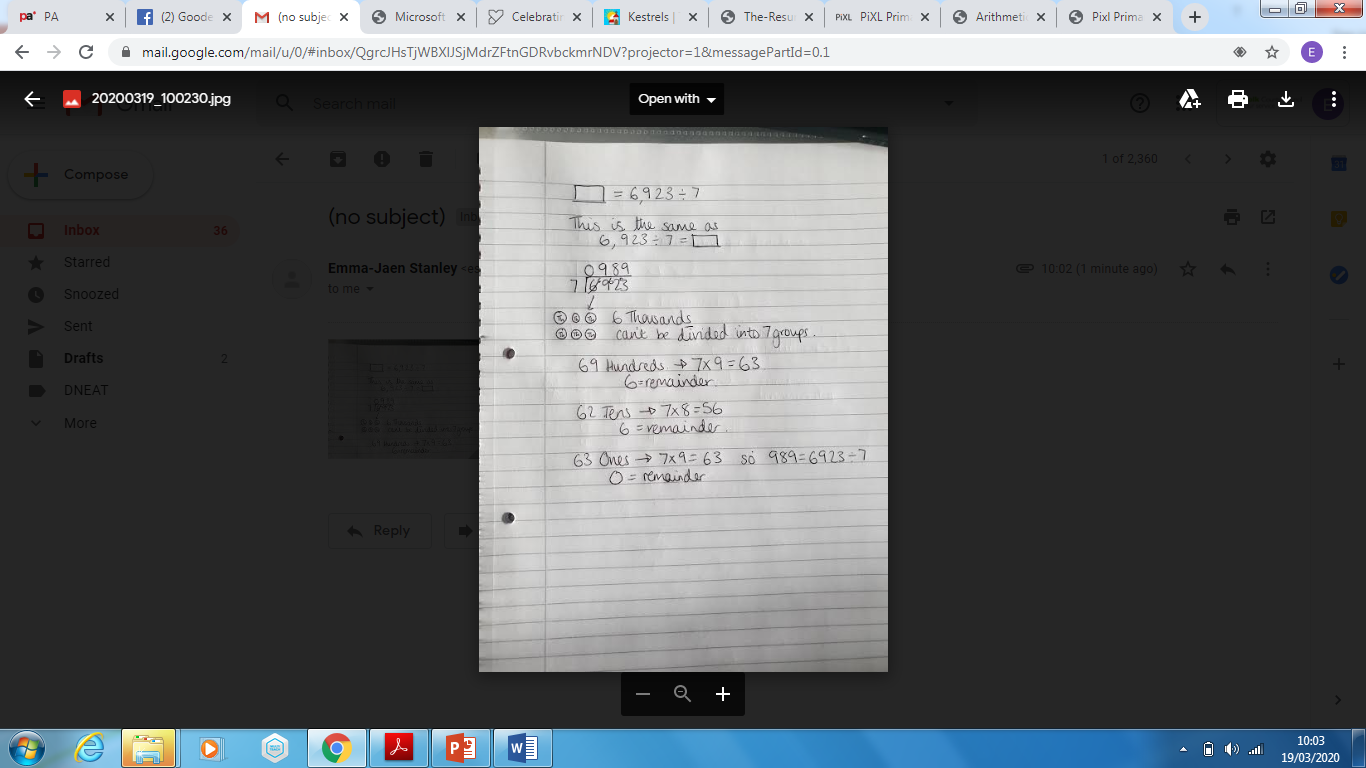 PA
(2) Goode
(no subje
Microsoft
Celebratin
Kestrels |
The-Resu
PiXL PiXL Prim
Arithmeti
Pixl Prima
mail.google.com/mail/u/0/#inbox/QgrcJHsTjWBXlJSjMdrZFtnGDRvbckmrNDV?projector=1&messagePartId=0.1
E
20200319_100230.jpg
Open with
Search mail
Compose
1 of 2,360
(no subject)
Inbox 36
Starred
Snoozed
Sent
Drafts 2
DNEAT
More
Emma-Jaen Stanley
to me
10:02 (1 minute ago)
Reply
= 6,923 ÷ 7
This is the same as
6,923 ÷ 7 =
0989
7 6923
6 Thousands
can't be divided into 7 groups.
69 Hundreds → 7x9 = 63
6 = remainder.
62 Tens → 7x8 = 56
6 = remainder.
63 Ones → 7x9 = 63 so 989 = 6923 ÷ 7
0 = remainder
10:03
19/03/2020